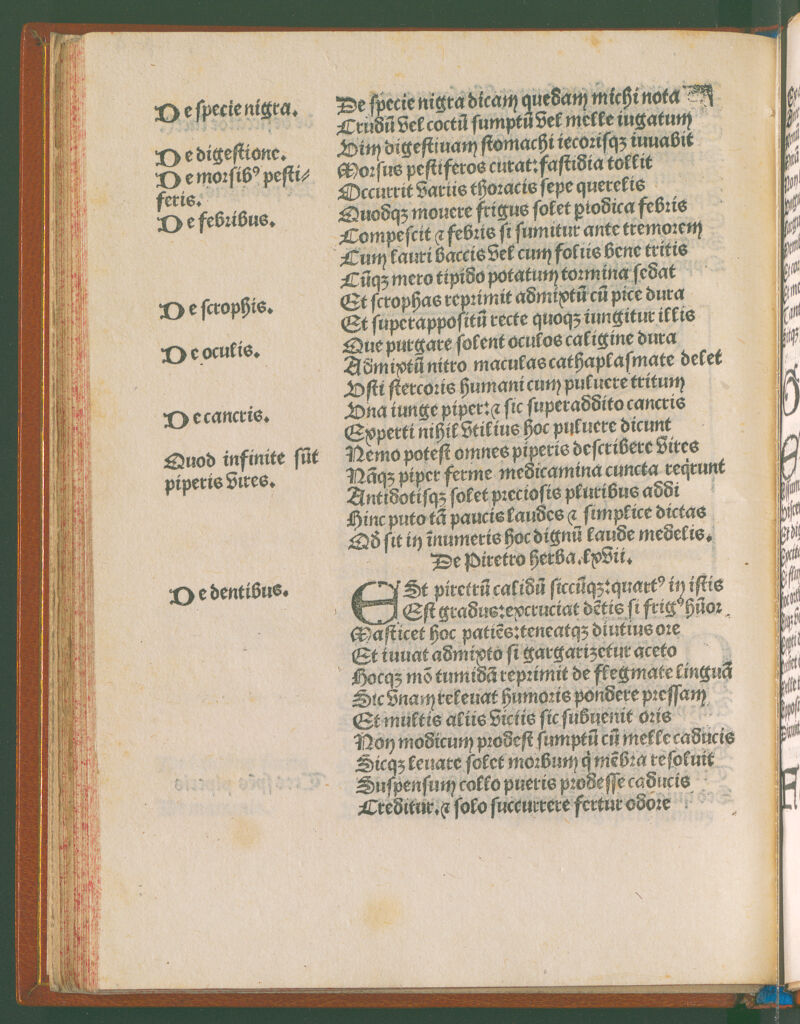 De specie nigra.
De digestione.
De morsibꝰ pesti⸗
feris.
De febribus.
De scrophis.
De oculis.
De cancris.
Quod infinite sūt
piperis vires.
De dentibus.
De specie nigra dicam quedam michi nota
Crudū vel coctū sumptū vel melle iugatum
Vim digestiuam stomachi iecorisqꝫ iuuabit
Morsus pestiferos curat: fastidia tollit
Occurrit variis thoracis sepe querelis
Quodqꝫ mouere frigus solet piodica febris
Compescit ⁊ febris si sumitur ante tremorem
Cum lauri baccis vel cum foliis bene tritis
Cūqꝫ mero tipido potatum tormina sedat
Et scrophas reprimit admixtū cū pice dura
Et superappositū recte quoqꝫ iungitur illis
Que purgare solent oculos caligine dura
Admixtū nitro maculas cathaplasmate delet
Vsti stercoris humani cum puluere tritum
Vna iunge piper: ⁊ sic superaddito cancris
Experti nihil vtilius hoc puluere dicunt
Nemo potest omnes piperis describere vires
Nāqꝫ piper ferme medicamina cuncta reqrunt
Antidotisqꝫ solet preciosis pluribus addi
Hinc puto tā paucis laudes ⁊ simplice dictas
Qd sit in īnumeris hoc dignū laude medelis.
De Piretro herba. lxvii.
ESt piretrū calidū siccūqꝫ: quartꝰ in istis
Est gradus: excruciat dētis si frigꝰ hūor
Masticet hoc patiēs: teneatqꝫ diutius ore
Et iuuat admixto si gargarizetur aceto
Hocqꝫ mō tumidā reprimit de flegmate linguā
Sic vnam releuat humoris pondere pressam
Et multis aliis viciis sic subuenit oris
Non modicum prodest sumptū cū melle caducis
Sicqꝫ leuare solet morbum q̄ mēbra resoluit
Suspensum collo pueris prodesse caducis
Creditur, ⁊ solo succurrere fertur odore